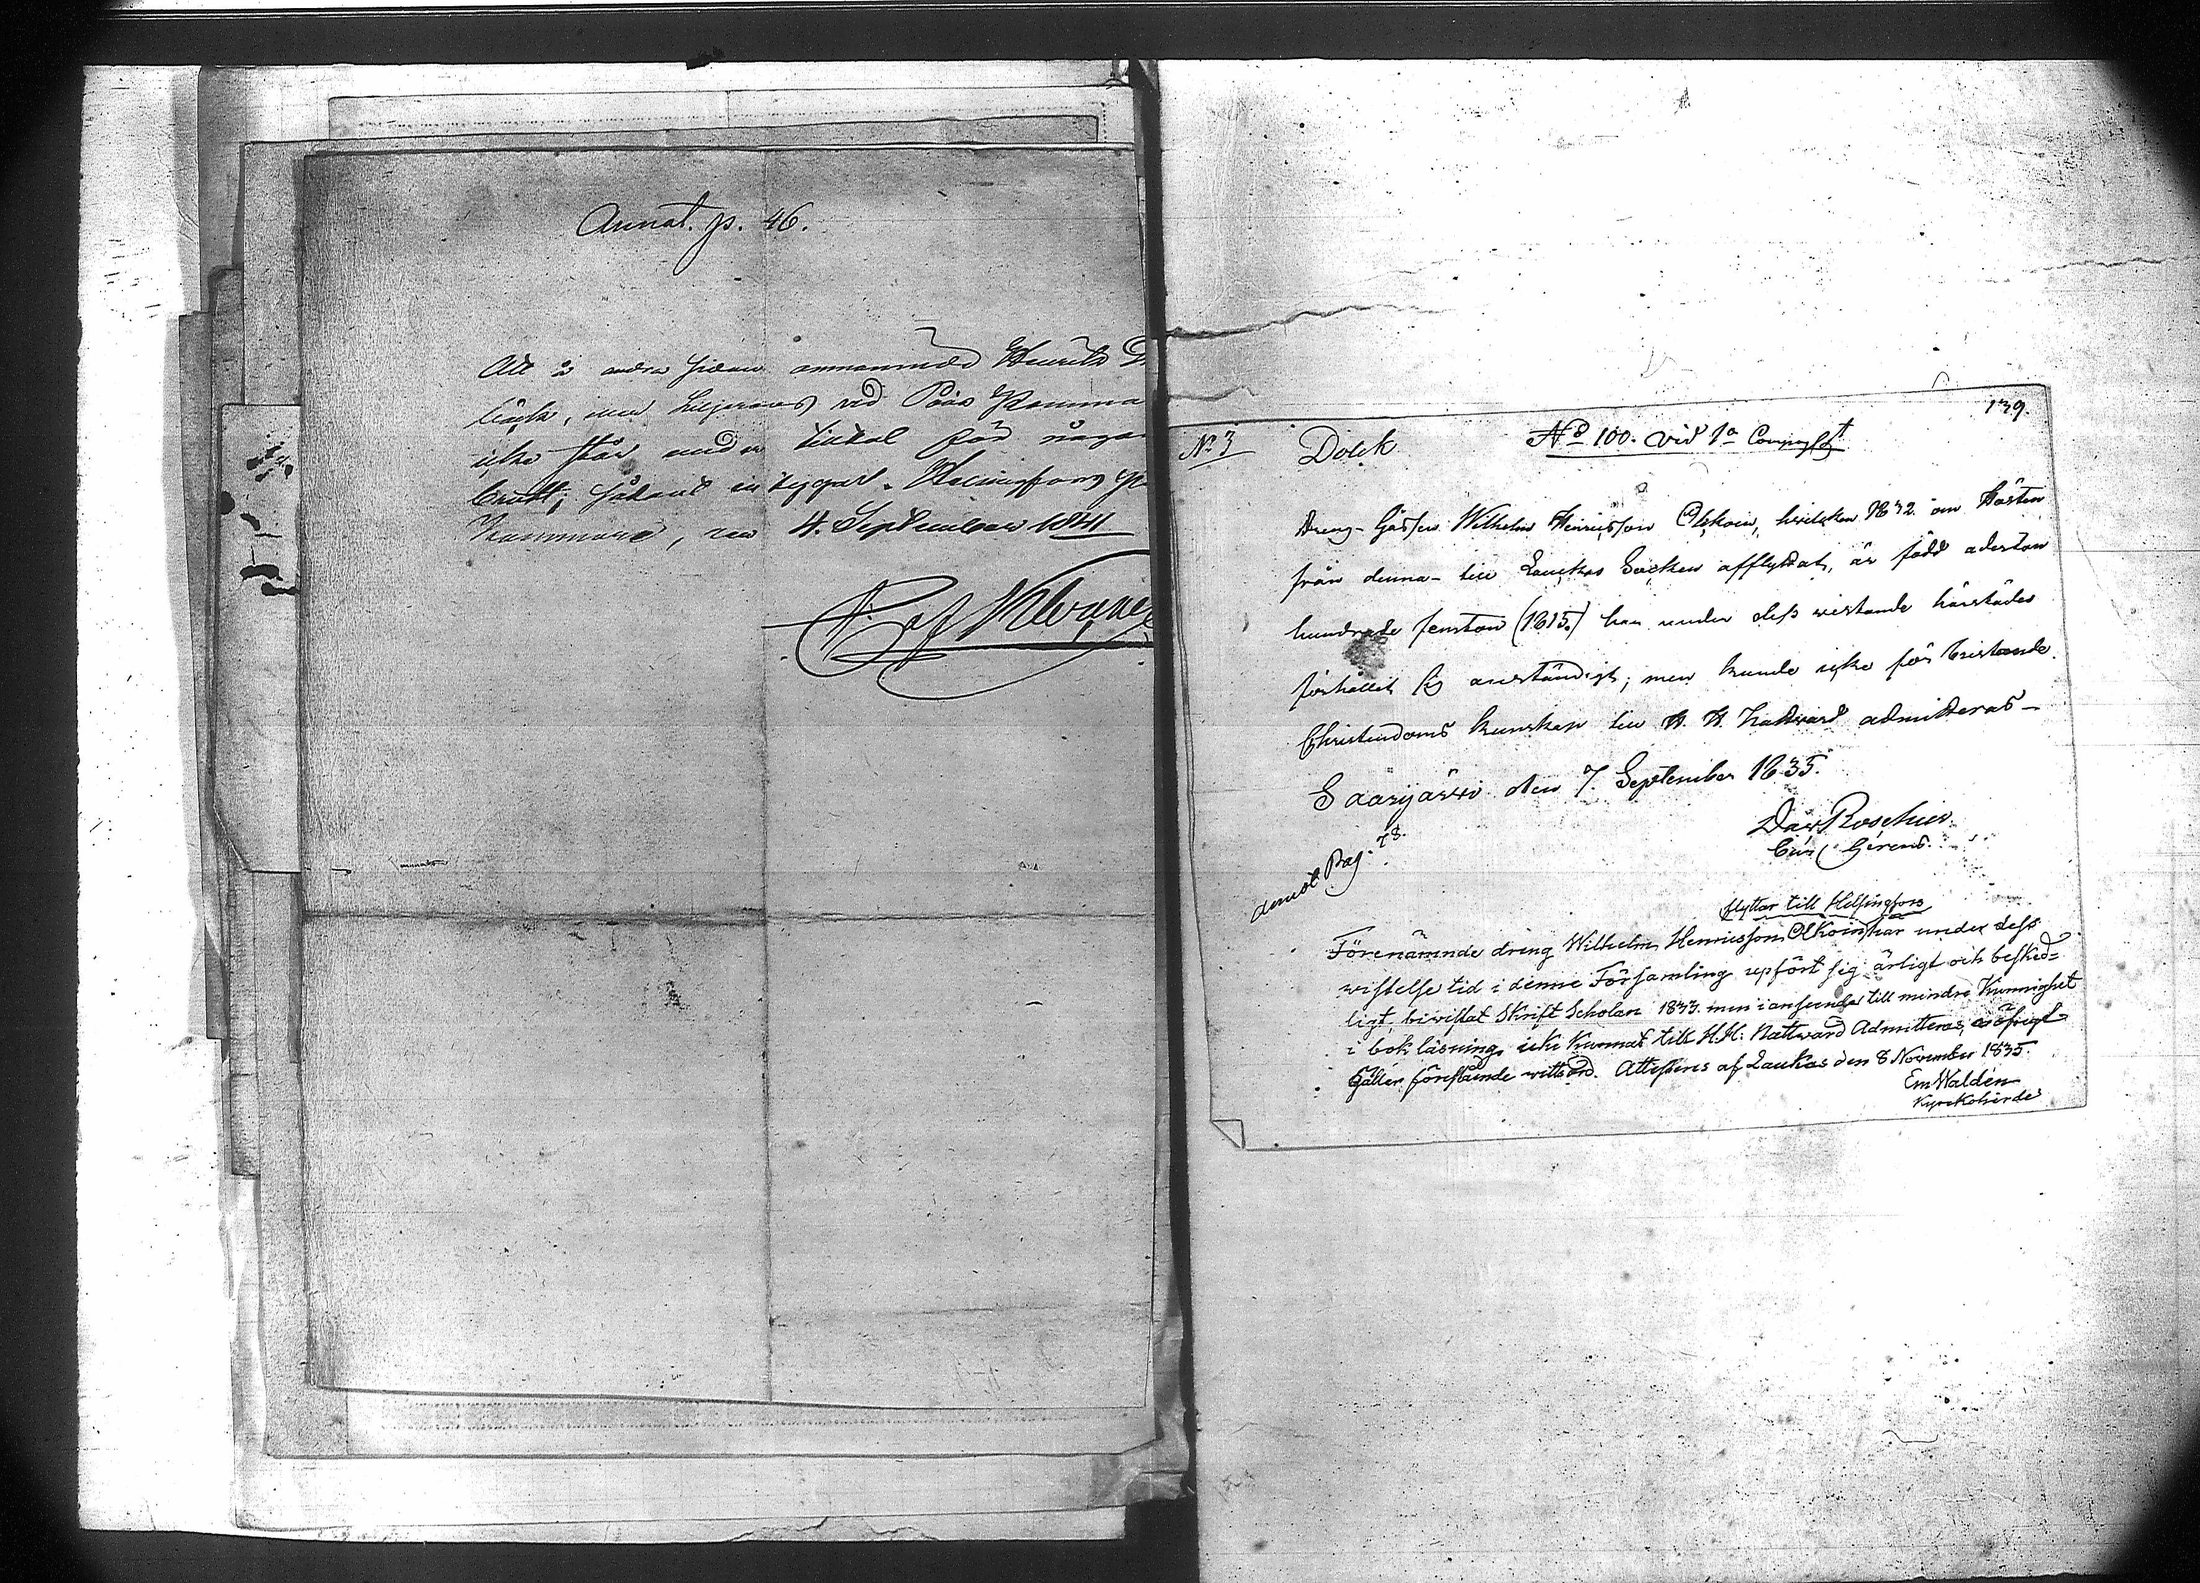 Annot. p. 46.
Att å andra sidan omnämnde Henrik
bäck, vid Påås
icke står under tilltal för något
brott; sådant intygar. Helsingfors
Kammare, den 4. September 1841
139.
No 3 Dolck No 100. vid 1a Compagt
Dreng-Gossen Wilhelm Henricsson Olkoin, hvilcken 1832 om hösten
från denna till Lauckas Socken afflyttat, är född aderton
hundrade femton (1815.) har under dess vistande härstädes
förhållit sig anständigt; men kunde icke för bristande
Christendoms kunskap till H. H. Nattvard admitteras –
Saarijärvi den 7. September 1835.
Dav Roschier.
annot. Pag. 78.
flyttar till Helsingfors
Förenämnde dreng Wilhelm Henricsson Olkoin har under dess
wistelse tid i denne Församling upfört sig ärligt och besked=
ligt, bivistat Skrift Scholan 1833. men i anseende till mindre Kunnighet
i bok läsning, icke kunnat till H.H. Nattward Admitteras, öfrigt
Gäller förestående wittsörd. Attesteras af Laukas den 8 November 1835.
Em Walden
Kyrckoherde